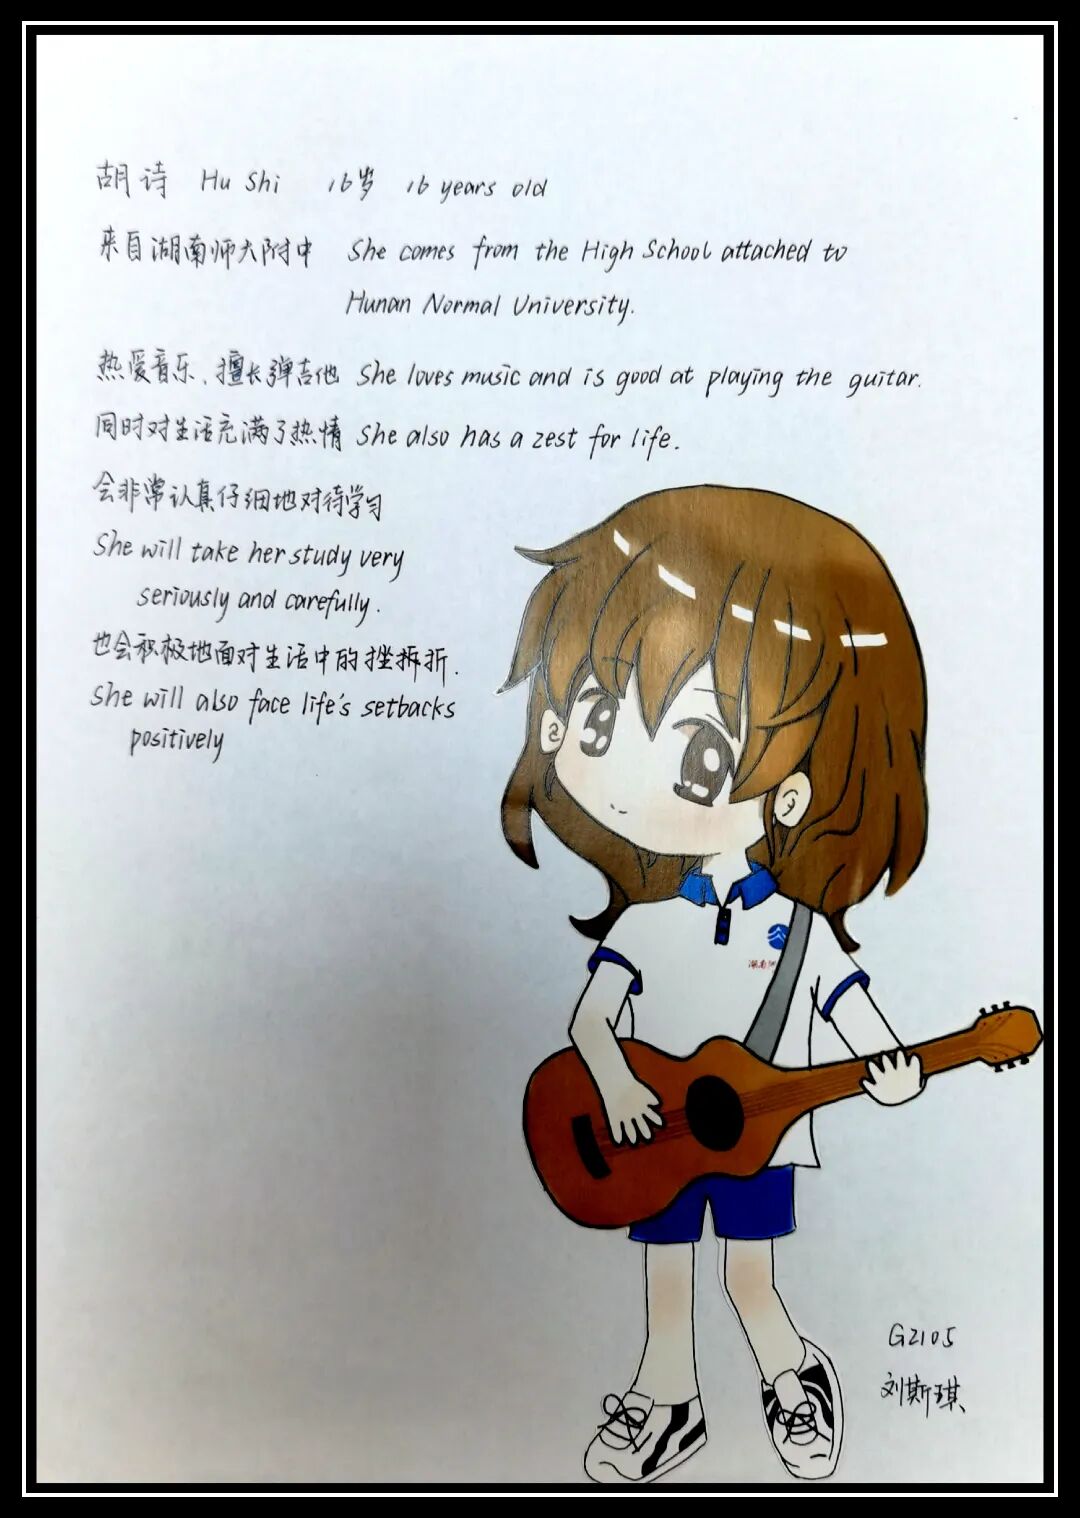 胡诗 Hu Shi 16岁 16 years old
来自湖南师大附中 She comes from the High School attached to
Hunan Normal University.
热爱音乐、擅长弹吉他 She loves music and is good at playing the guitar.
同时对生活充满了热情 She also has a zest for life.
会非常认真仔细地对待学习
She will take her study very
seriously and carefully.
也会积极地面对生活中的挫拆折.
She will also face life's setbacks
positively
湖南师
G2105
刘斯琪